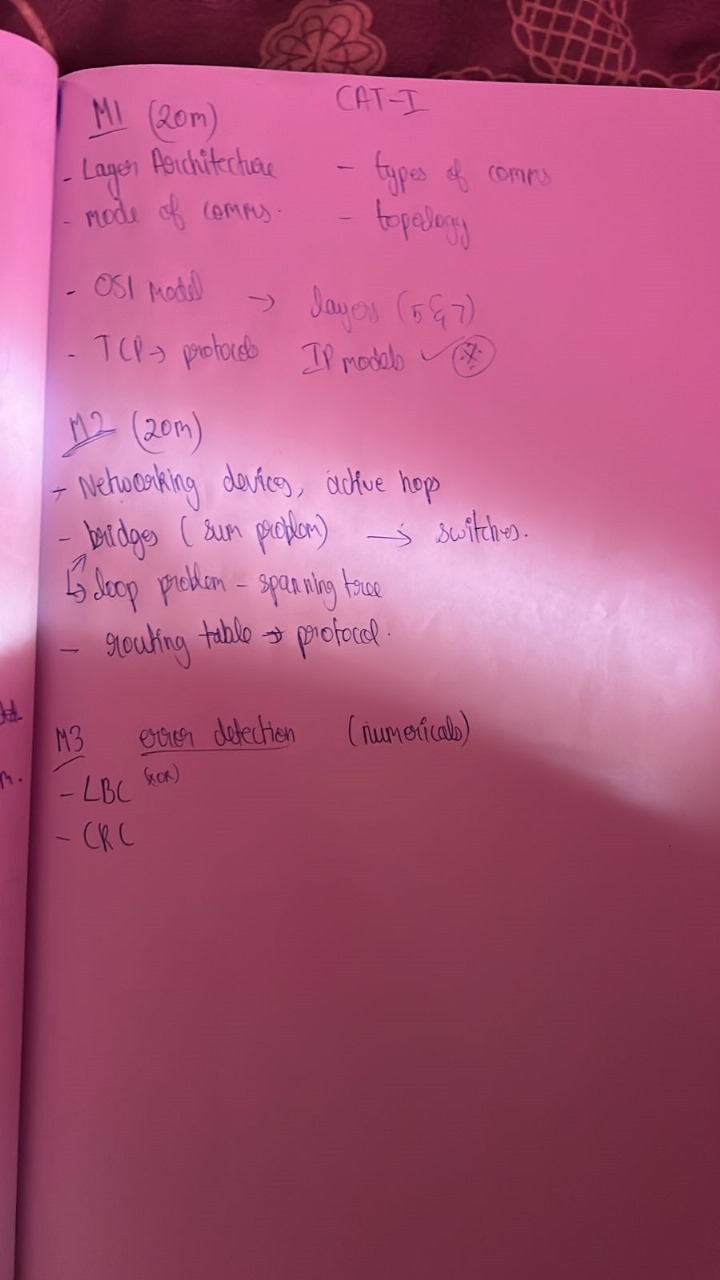 CAT-I
M1 (20m)
- Layer Architecture - types of comms
- mode of comms. - topology
- OSI Model → layers (5 & 7)
- TCP → protocols IP models ✓ *
M2 (20m)
- Networking devices, active hops
- bridges (sum problem) → switches.
↳ loop problem - spanning tree
- routing table → protocol.
M3 error detection (numericals)
- LBC (XOR)
- CRC